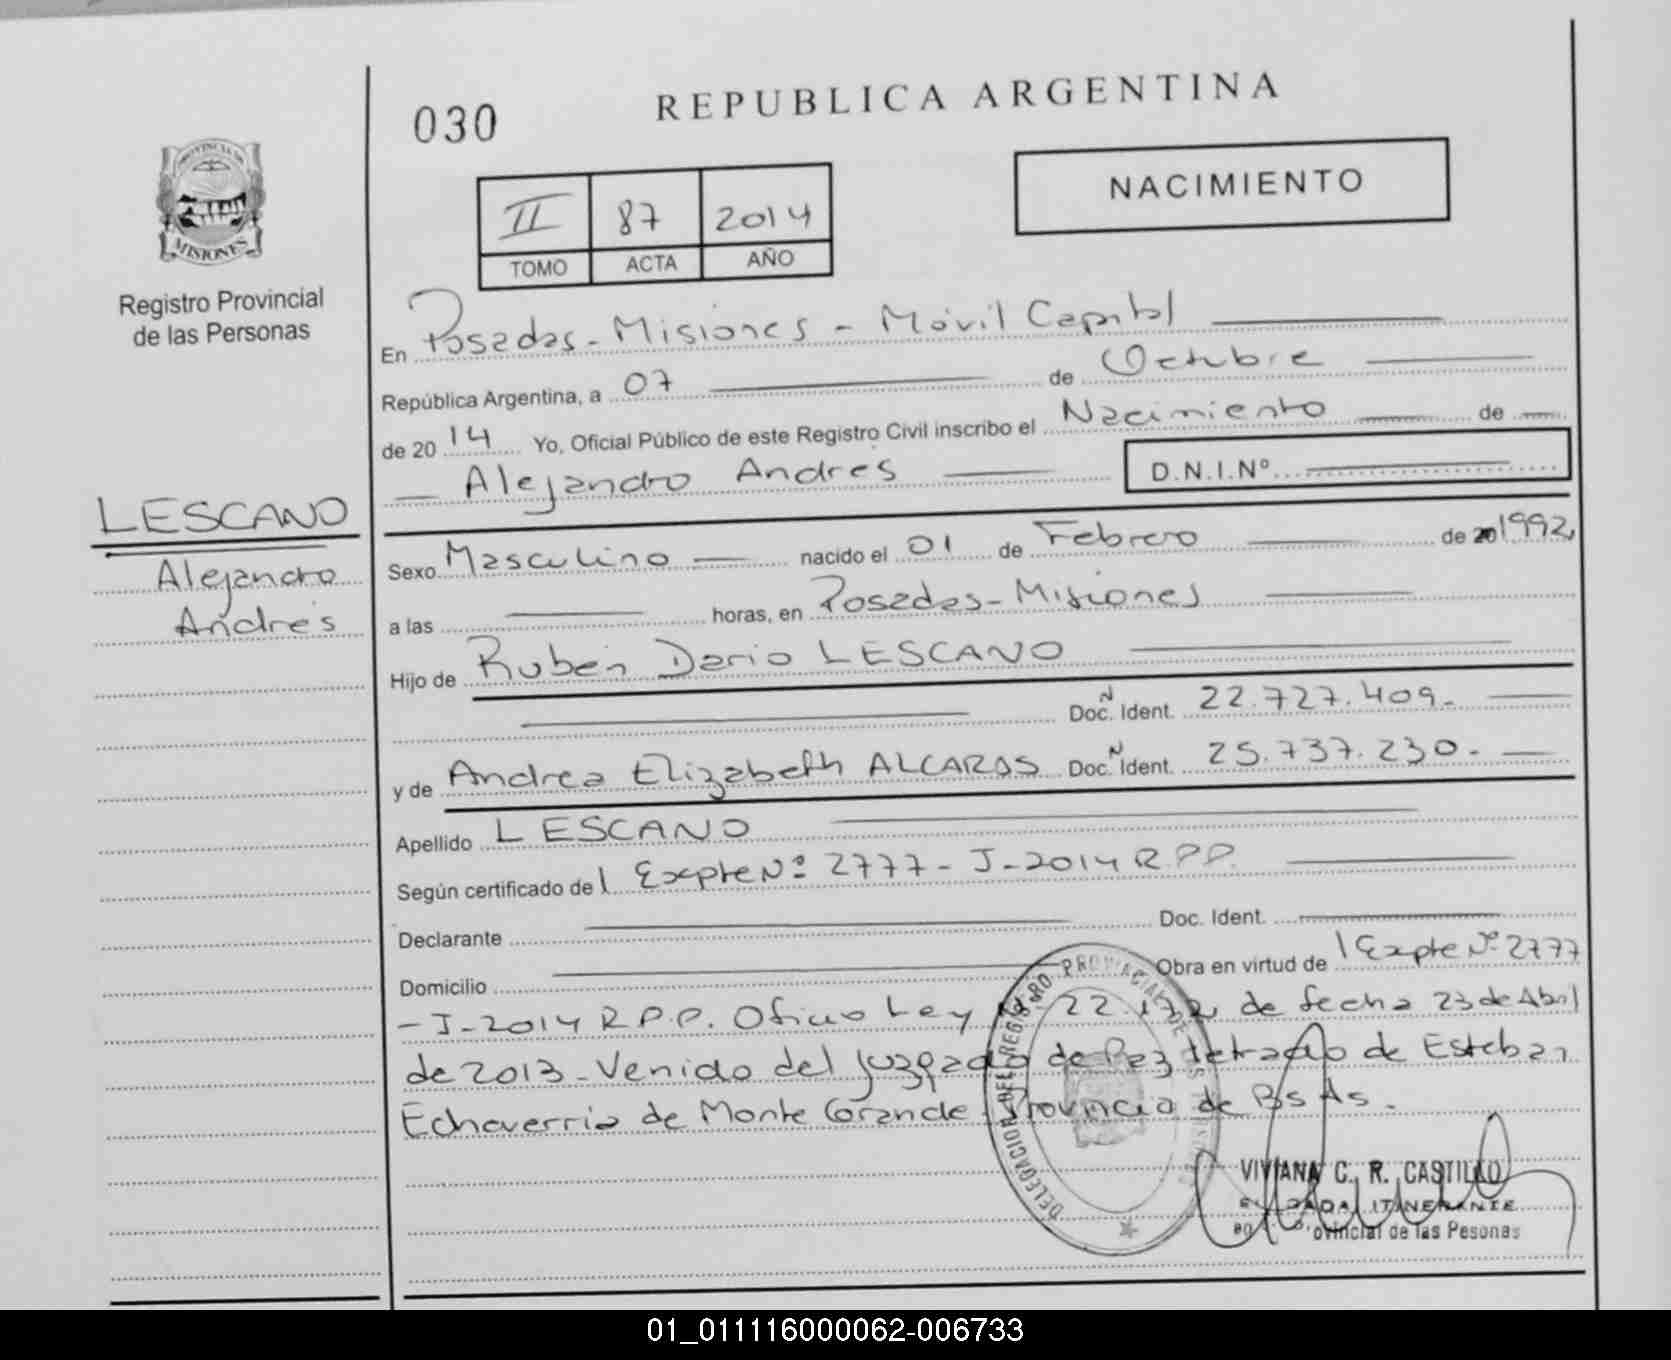 030
REPUBLICA ARGENTINA
NACIMIENTO
II 87 2014
TOMO ACTA AÑO
PROVINCIA DE
MISIONES
Registro Provincial
de las Personas
LESCANO
Alejandro
Andrés
En Posadas - Misiones - Móvil Capital
República Argentina, a 07 de Octubre
de 2014 Yo, Oficial Público de este Registro Civil inscribo el Nacimiento de
Alejandro Andrés D.N.I.Nº
Sexo Masculino nacido el 01 de Febrero de 1992,
a las horas, en Posadas - Misiones
Hijo de Rubén Dario LESCANO
Doc. Ident. 22.727.409.-
y de Andrea Elizabeth ALCARAS Doc. Ident. 25.737.230.-
Apellido LESCANO
Según certificado de Expte Nº 2777 - J - 2014 R.P.P.
Declarante Doc. Ident.
Domicilio Obra en virtud de Expte Nº 2777
- J - 2014 R.P.P. Oficio Ley 22.172 de fecha 23 de Abril
de 2013 - Venido del Juzgado de Paz Letrado de Esteban
Echeverria de Monte Grande - Provincia de Bs As.
DELEGACION DEL REGISTRO PROVINCIAL DE LAS
VIVIANA C. R. CASTILLO
ITINERANTE
Provincial de las Pesonas
01_011116000062-006733